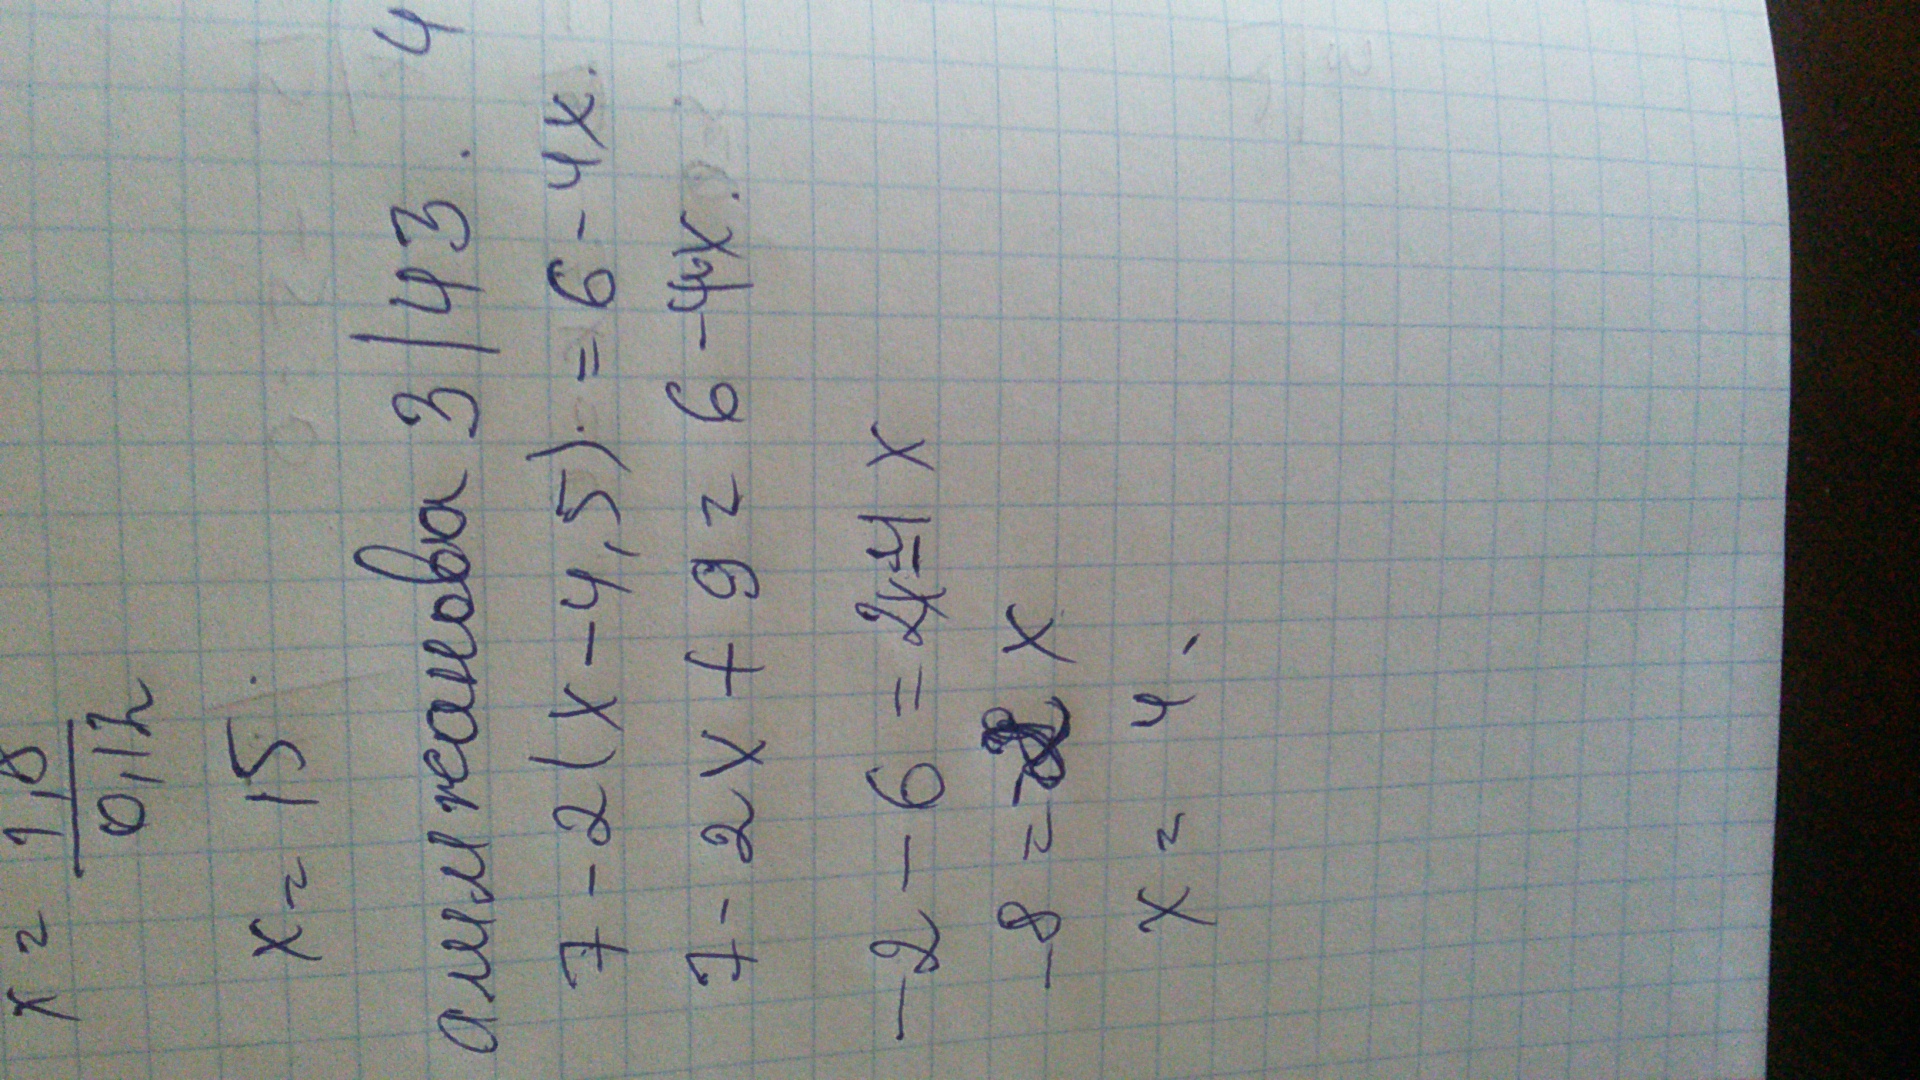 x = 1,8
0,12
x = 15.
3 | 43. 4
7 - 2(x - 4,5) = 6 - 4x.
7 - 2x + 9 = 6 - 4x.
-2 - 6 = 2x - 4x
-8 = -2x
x = 4.